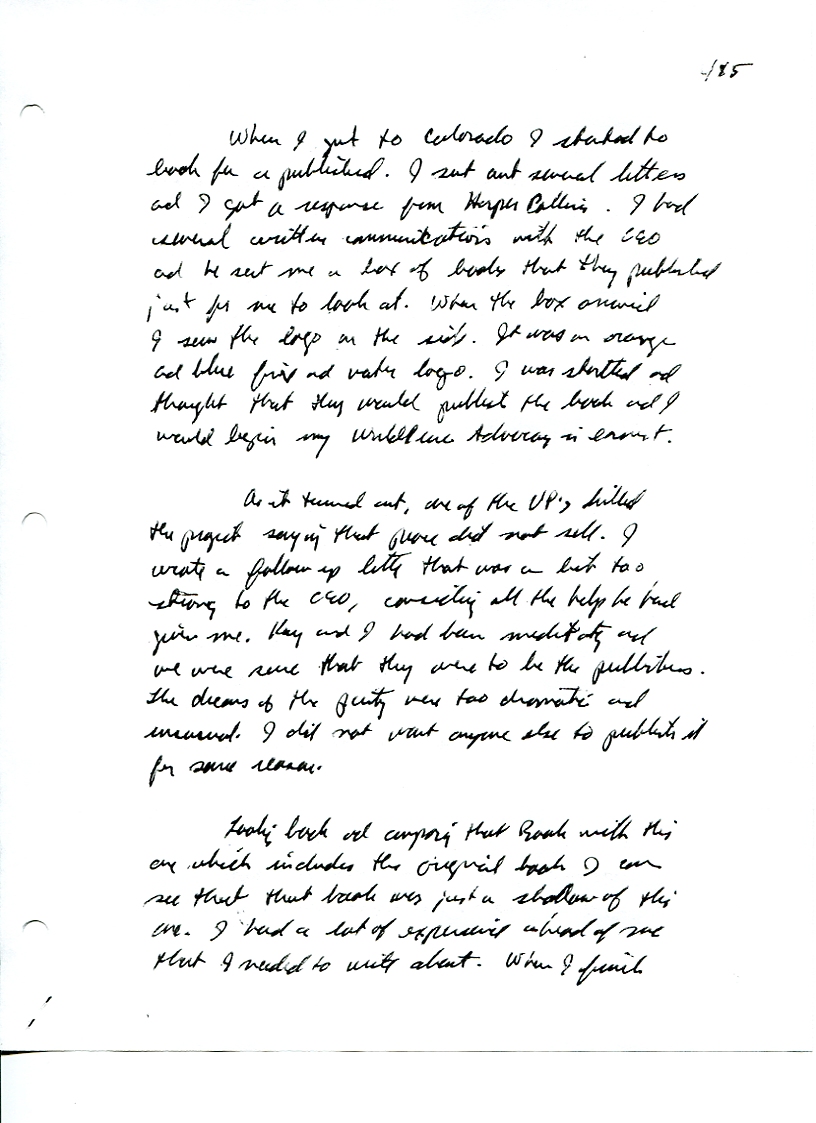 185
When I got to Colorado I started to
look for a published. I sent out several letters
and I got a response from Harper Collins. I had
several written communications with the CEO
and he sent me a box of books that they published
just for me to look at. When the box arrived
I saw the logo on the side. It was an orange
and blue fire and water logo. I was startled and
thought that they would publish the book and I
would begin my World Peace Advocacy in earnest.
As it turned out, one of the VP's killed
the project saying that peace did not sell. I
wrote a follow up letter that was a bit too
strong to the CEO, considering all the help he had
given me. Kay and I had been meditating and
we were sure that they were to be the publishers.
The dreams of the were too dramatic and
unusual. I did not want anyone else to publish it
for some reason.
Looking back and comparing that Book with this
one which includes the original book I can
see that that book was just a shadow of this
one. I had a lot of experience ahead of me
that I needed to write about. When I finish